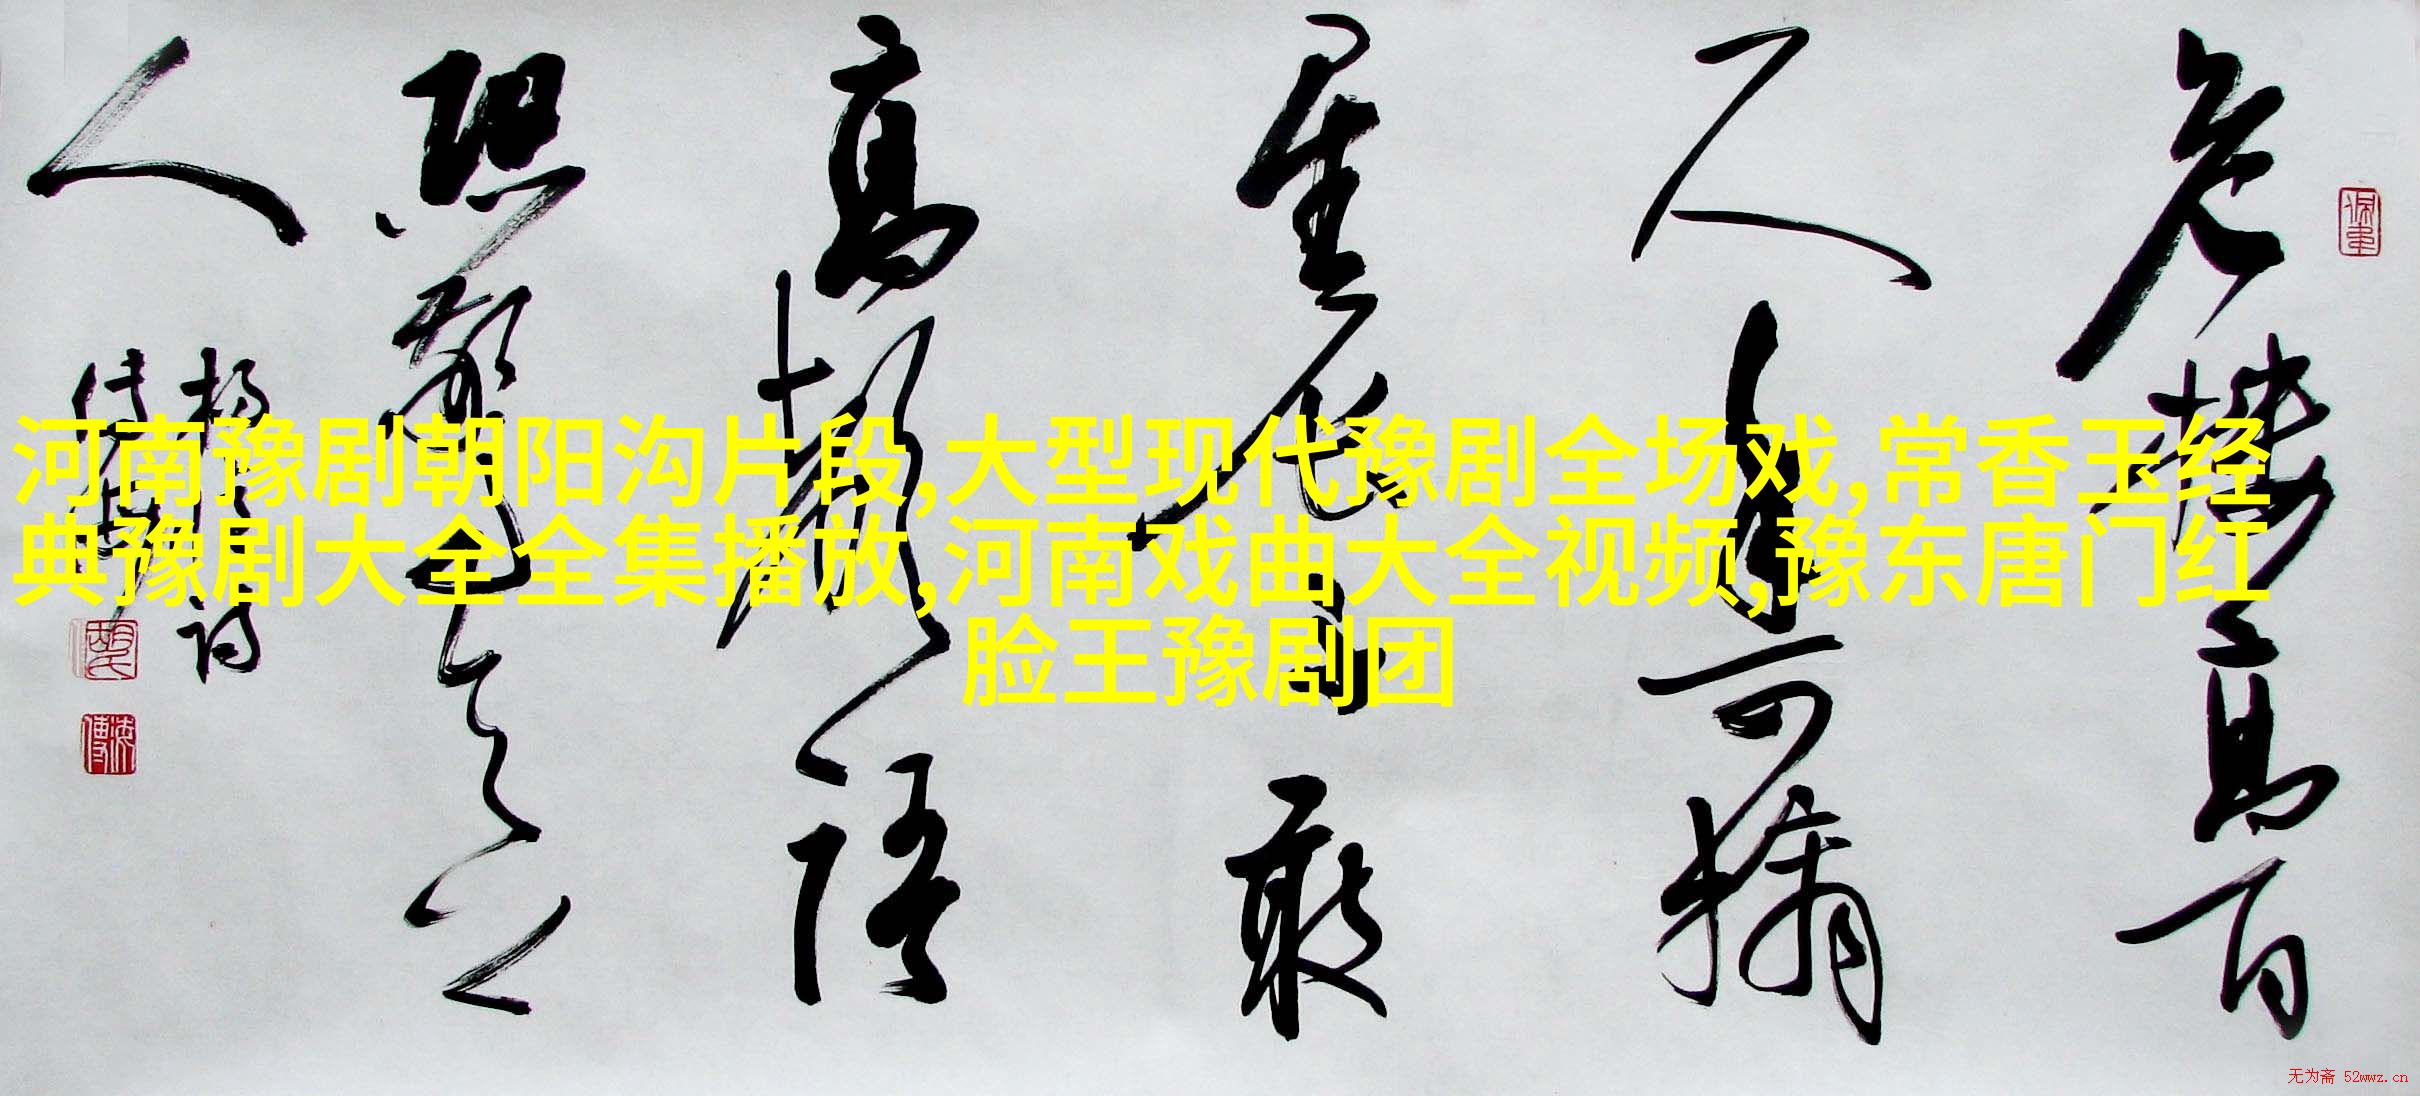 河南豫剧朝阳沟片段,大型现代豫剧全场戏,常香玉经
典豫剧大全全集播放,河南戏曲大全视频,豫东唐门红
脸王豫剧团
危楼高百
尺手可摘
星辰不敢
高声语
恐惊天上
人
无为斋 52wwz.cn